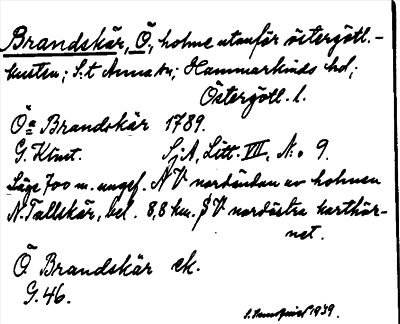 Brandskär, Ö, holme utanför östergötl.-
kusten; S:t Anna sn; Hammarkinds hd;
Östergötl. l.
Öa Brandskär 1789.
G. Klint. SjA, Litt. VIII, N:o 9.
Läge 700 m. ungef. NV nordändan av holmen
N. Tallskär, bel. 8,8 km. SV nordöstra karthör-
net.
Ö. Brandskär ek.
G. 46.
1939.